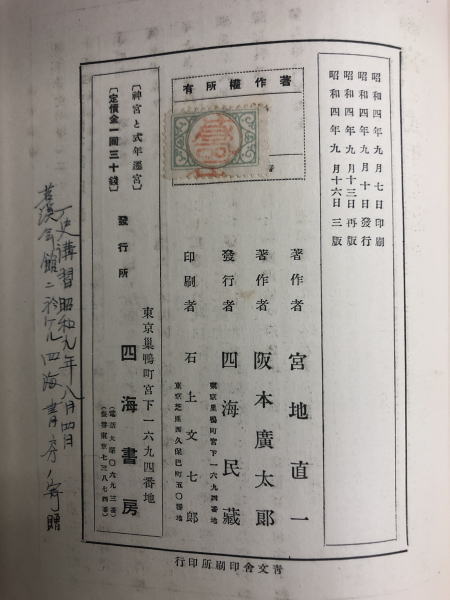 昭和四年九月七日印刷
昭和四年九月十日發行
昭和四年九月十三日再版
昭和四年九月十六日三版
著作權所有
著作者 宮地直一
著作者 阪本廣太郎
發行者 四海民藏
東京巢鴨町宮下一六九四番地
印刷者 石上文七郎
東京芝區西久保巴町五〇番地
〔神宮と式年遷宮〕
〔定價金一圓三十錢〕
發行所
東京巢鴨町宮下一六九四番地
四海書房
(電話大塚〇六九三番)
(振替東京七三八七四番)
青文舍印刷所印行
史講習昭和九年八月四日
茗溪会館ニ於ケル四海書房ノ寄贈